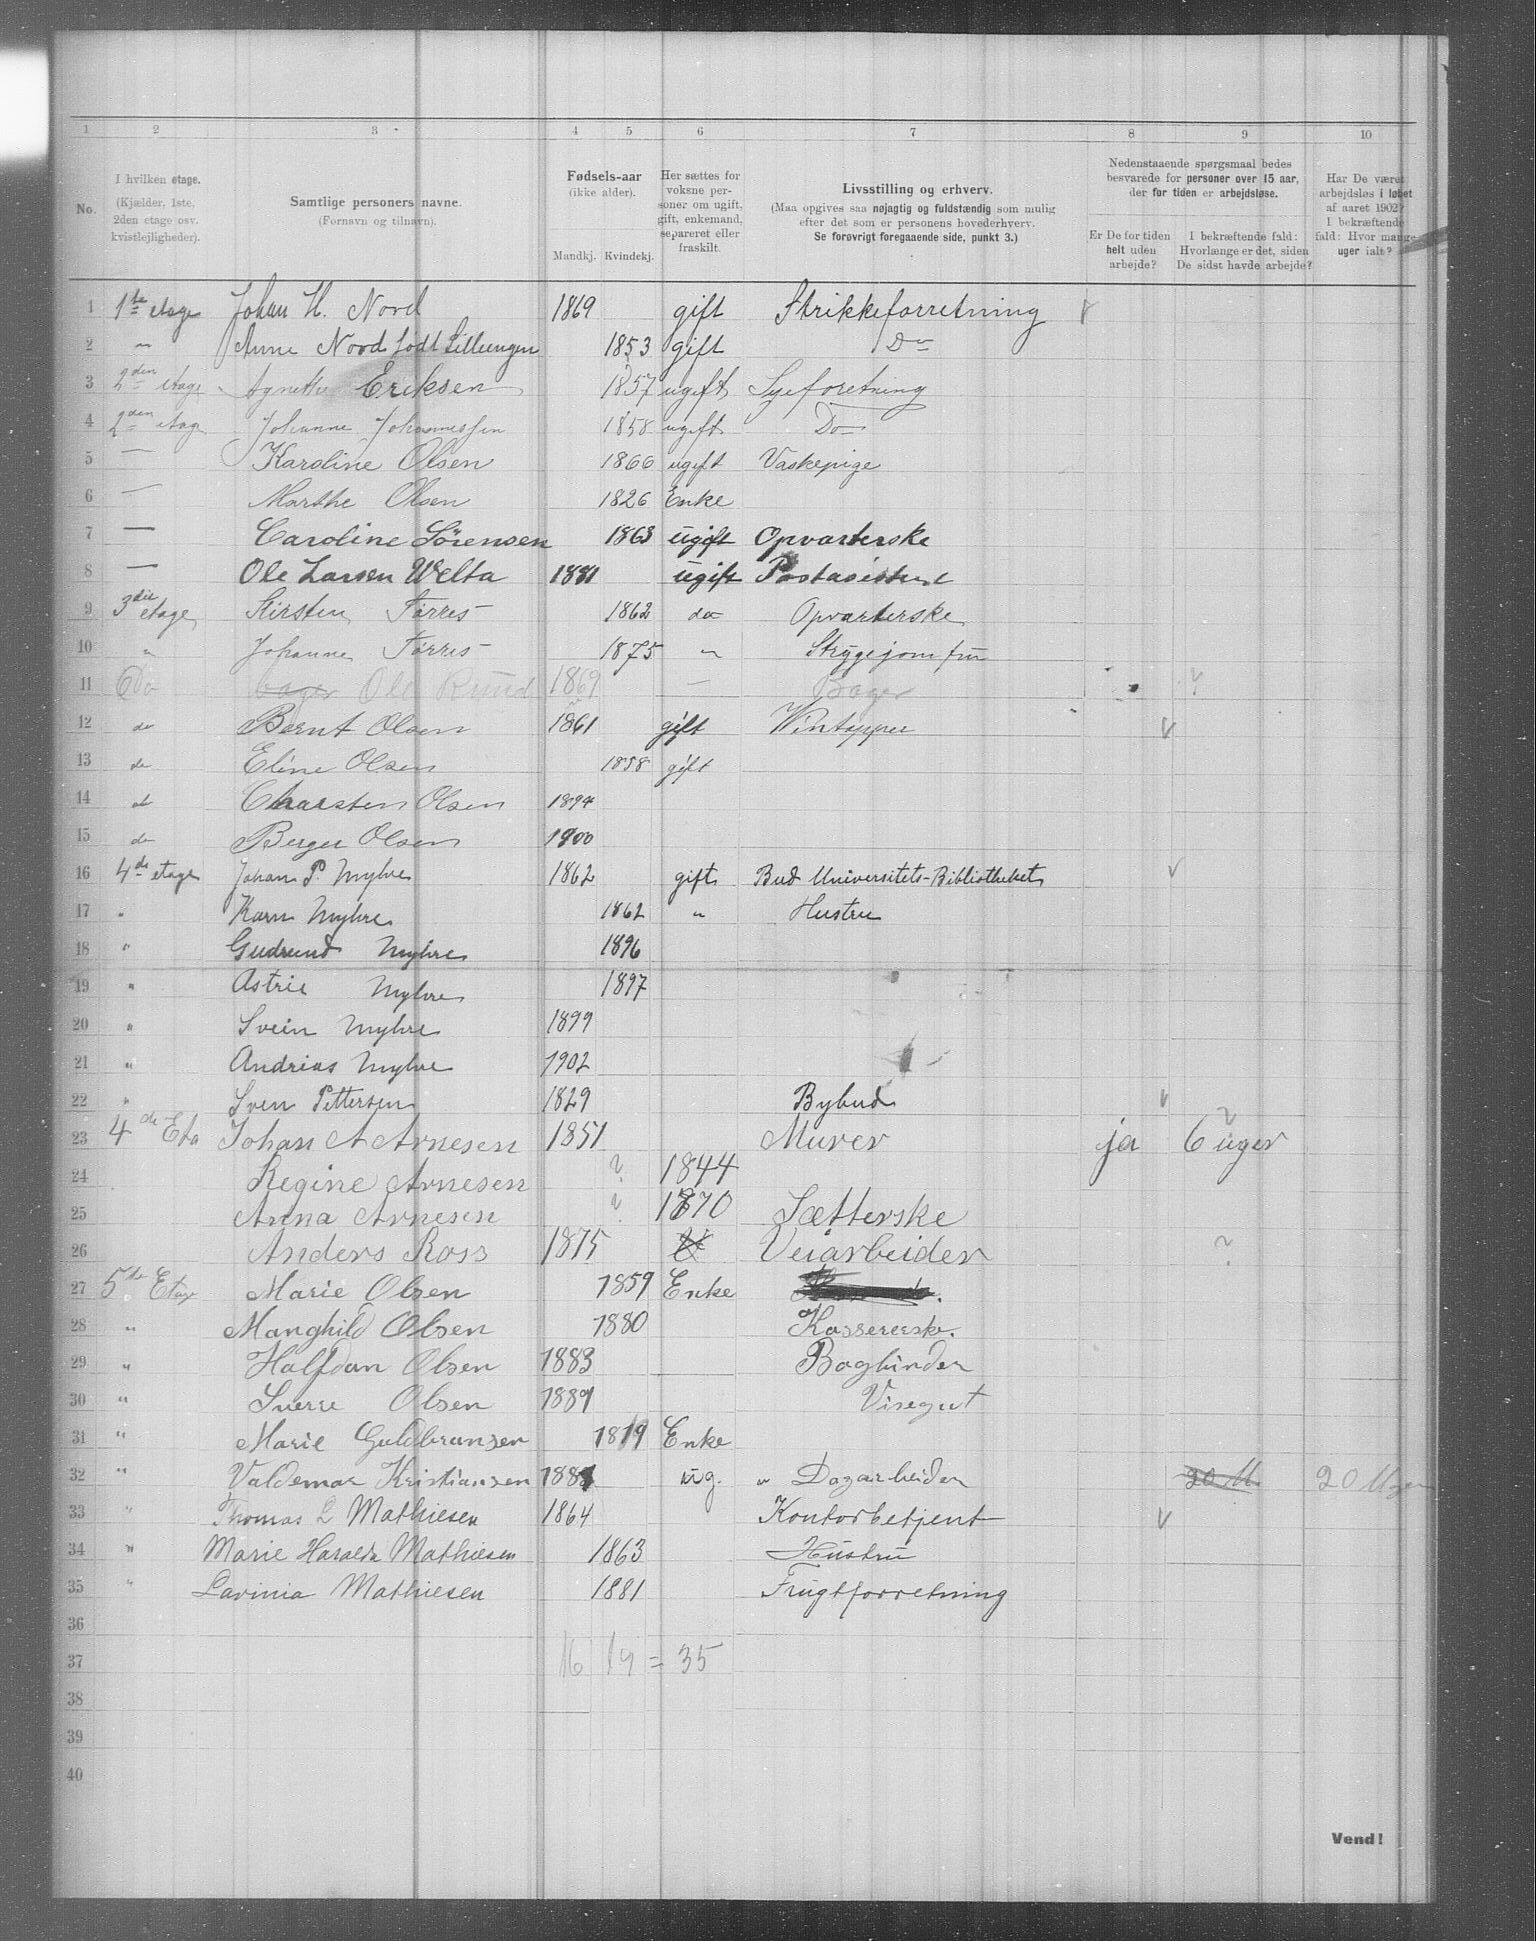 1 2 3 4 5 6 7 8 9 10
No.
I hvilken etage.
(Kjælder, 1ste,
2den etage osv.
kvistlejligheder).
Samtlige personers navne.
(Fornavn og tilnavn).
Fødsels-aar
(ikke alder).
Mandkj. Kvindekj.
Her sættes for
voksne per-
soner om ugift,
gift, enkemand,
separeret eller
fraskilt.
Livsstilling og erhverv.
(Maa opgives saa nøjagtig og fuldstændig som mulig
efter det som er personens hovederhverv.
Se forøvrigt foregaaende side, punkt 3.)
Nedenstaaende spørgsmaal bedes
besvarede for personer over 15 aar,
der for tiden er arbejdsløse.
Er De for tiden
helt uden
arbejde?
I bekræftende fald:
Hvorlænge er det, siden
De sidst havde arbejde?
Har De været
arbejdsløs i løbet
af aaret 1902?
I bekræftende
fald: Hvor mange
uger ialt?
1 1ste etage Johan H. Nord 1869 gift Strikkeforretning
2 " Anne Nord født Lilleengen 1853 gift Do
3 2den etage Agnette Eriksen 1857 ugift Syeforetning
4 2den etage Johanne Johannessen 1858 ugift Do
5 — Karoline Olsen 1866 ugift Vaskepige
6 — Marthe Olsen 1826 Enke
7 — Caroline Sörensen 1863 ugift Opvarterske
8 — Ole Larsen Welta 1881 ugift Postasistent
9 3die etage Kirsten Tørres 1862 do Opvarterske
10 " Johanne Tørres 1875 " Strygejomfru
11 Do Bager Ole Rund 1869 — Bager ?
12 do Bernt Olsen 1861 gift Vintapper
13 do Eline Olsen 1858 gift
14 do Charsten Olsen 1894
15 do Berger Olsen 1900
16 4de etage Johan P. Myhre 1862 gift Bud Universitets-Bibliotheket
17 " Karn Myhre 1862 " Hustru
18 " Gudrund Myhre 1896
19 " Astrie Myhre 1897
20 " Svein Myhre 1899
21 " Andrias Myhre 1902
22 " Sven Pettersen 1829 Bybud
23 4de Eta Johan A Arnesen 1851 Murer ja 6 uger ?
24 Regine Arnesen ? 1844
25 Anna Arnesen ? 1870 Sætterske
26 Anders Ross 1875 Veiarbeider ?
27 5te Etage Marie Olsen 1859 Enke
28 " Manghild Olsen 1880 Kassererske.
29 " Halfdan Olsen 1883 Bogbinder
30 " Sverre Olsen 1889 Visegut
31 " Marie Guldbransen 1819 Enke
32 " Valdemar Kristiansen 188 ug. " Dagarbeider 20 U 20 Uger
33 " Thomas L Mathiesen 1864 Kontorbetjent
34 " Marie Haralda Mathiesen 1863 Hustru
35 " Lavinia Mathiesen 1881 Frugtforretning
36
37 16 19 = 35
38
39
40
Vend!